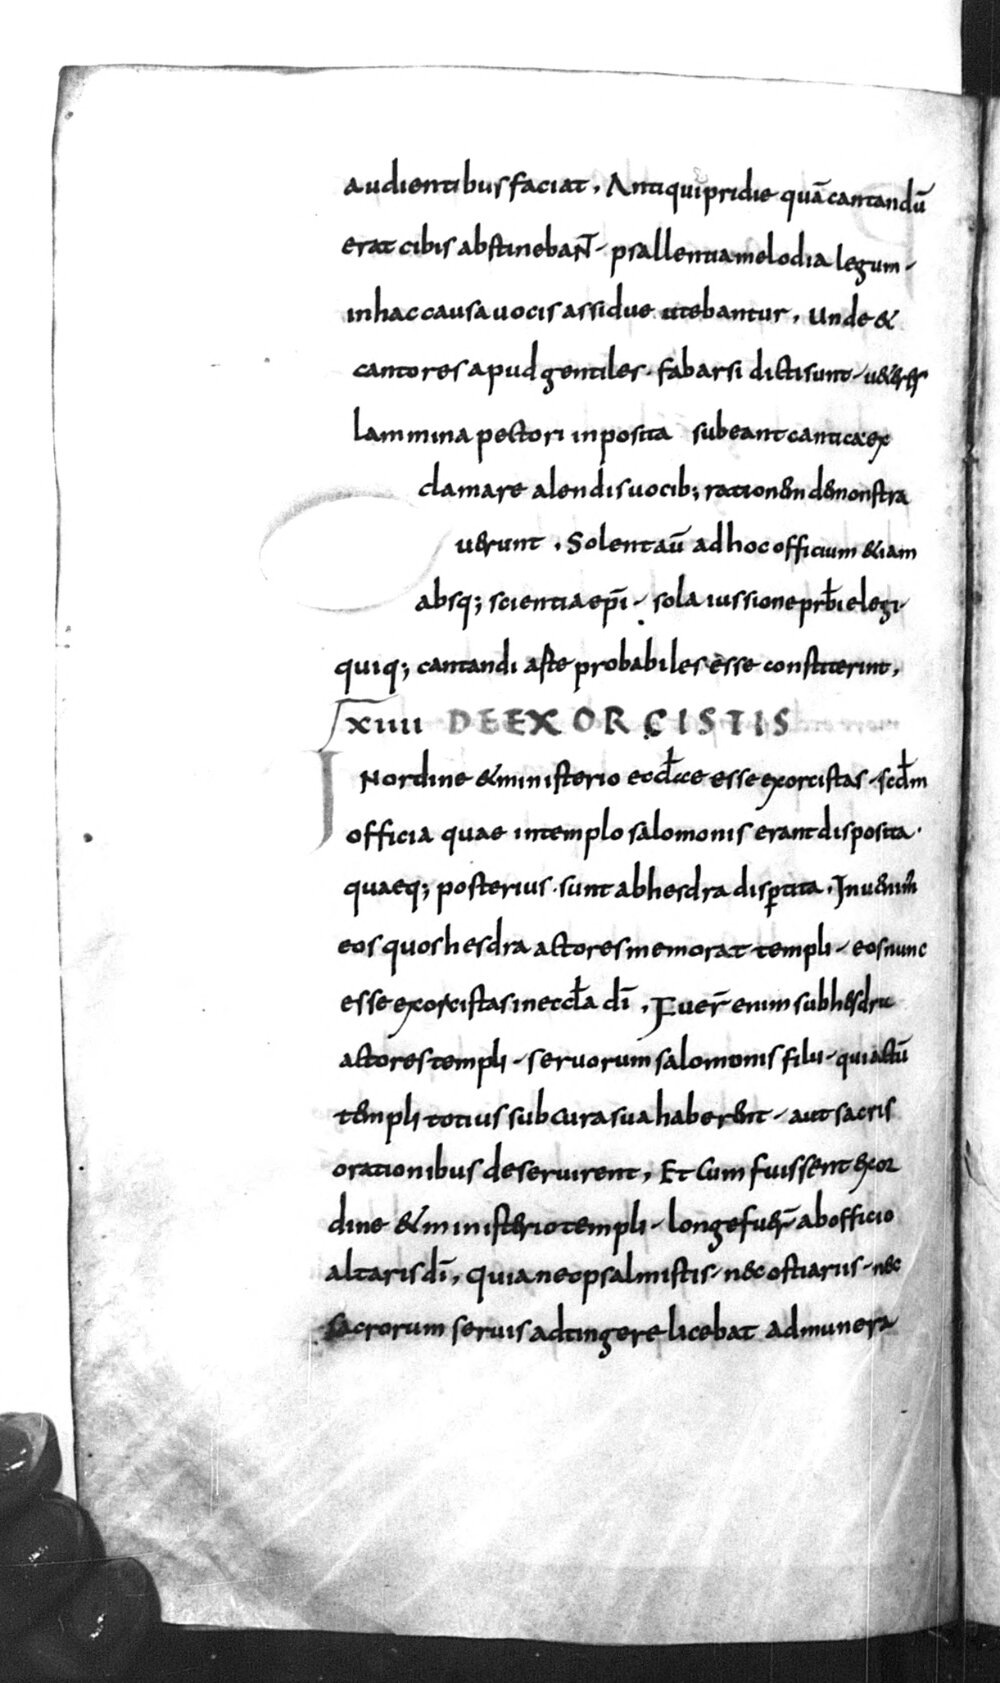 audientibus faciat. Antiqui pridie quā cantandū
erat cibis abstinebaNT. psallentia melodia legum.
in hac causa uocis assidue utebantur. Unde &
cantores apud gentiles. fabarsi dicti sunt.
lammina pectori inposita subeant cantica ex
clamare alendis uocib; rationem demonstra
uerunt. Solent aū ad hoc officium &iam
absq; scientia ep̄i. sola iussione prb̄i elegi.
quiq; cantandi aste probabiles esse constiterint.
XIIII DE EXORCISTIS
IN ordine & ministerio eccl̄ice esse exorcistas. scd̄m
officia quae in templo salomonis erant disposita.
quaeq; posterius. sunt ab hesdra disp̄tita. Inuenim̄
eos quos hesdra actores memorat templi. eos nunc
esse exorcistas in eccl̄a dī. Fuer̄ enim sub hesdra
actores templi. seruorum salomonis filii. qui actū
templi totius sub cura sua haberent. aut sacris
orationibus deseruirent. Et cum fuissent ex or
dine & ministerio templi. longe fuer̄ ab officio
altaris dī. quia neo psalmistis. nec ostiariis. nec
sacrorum seruis adtingere licebat ad munera